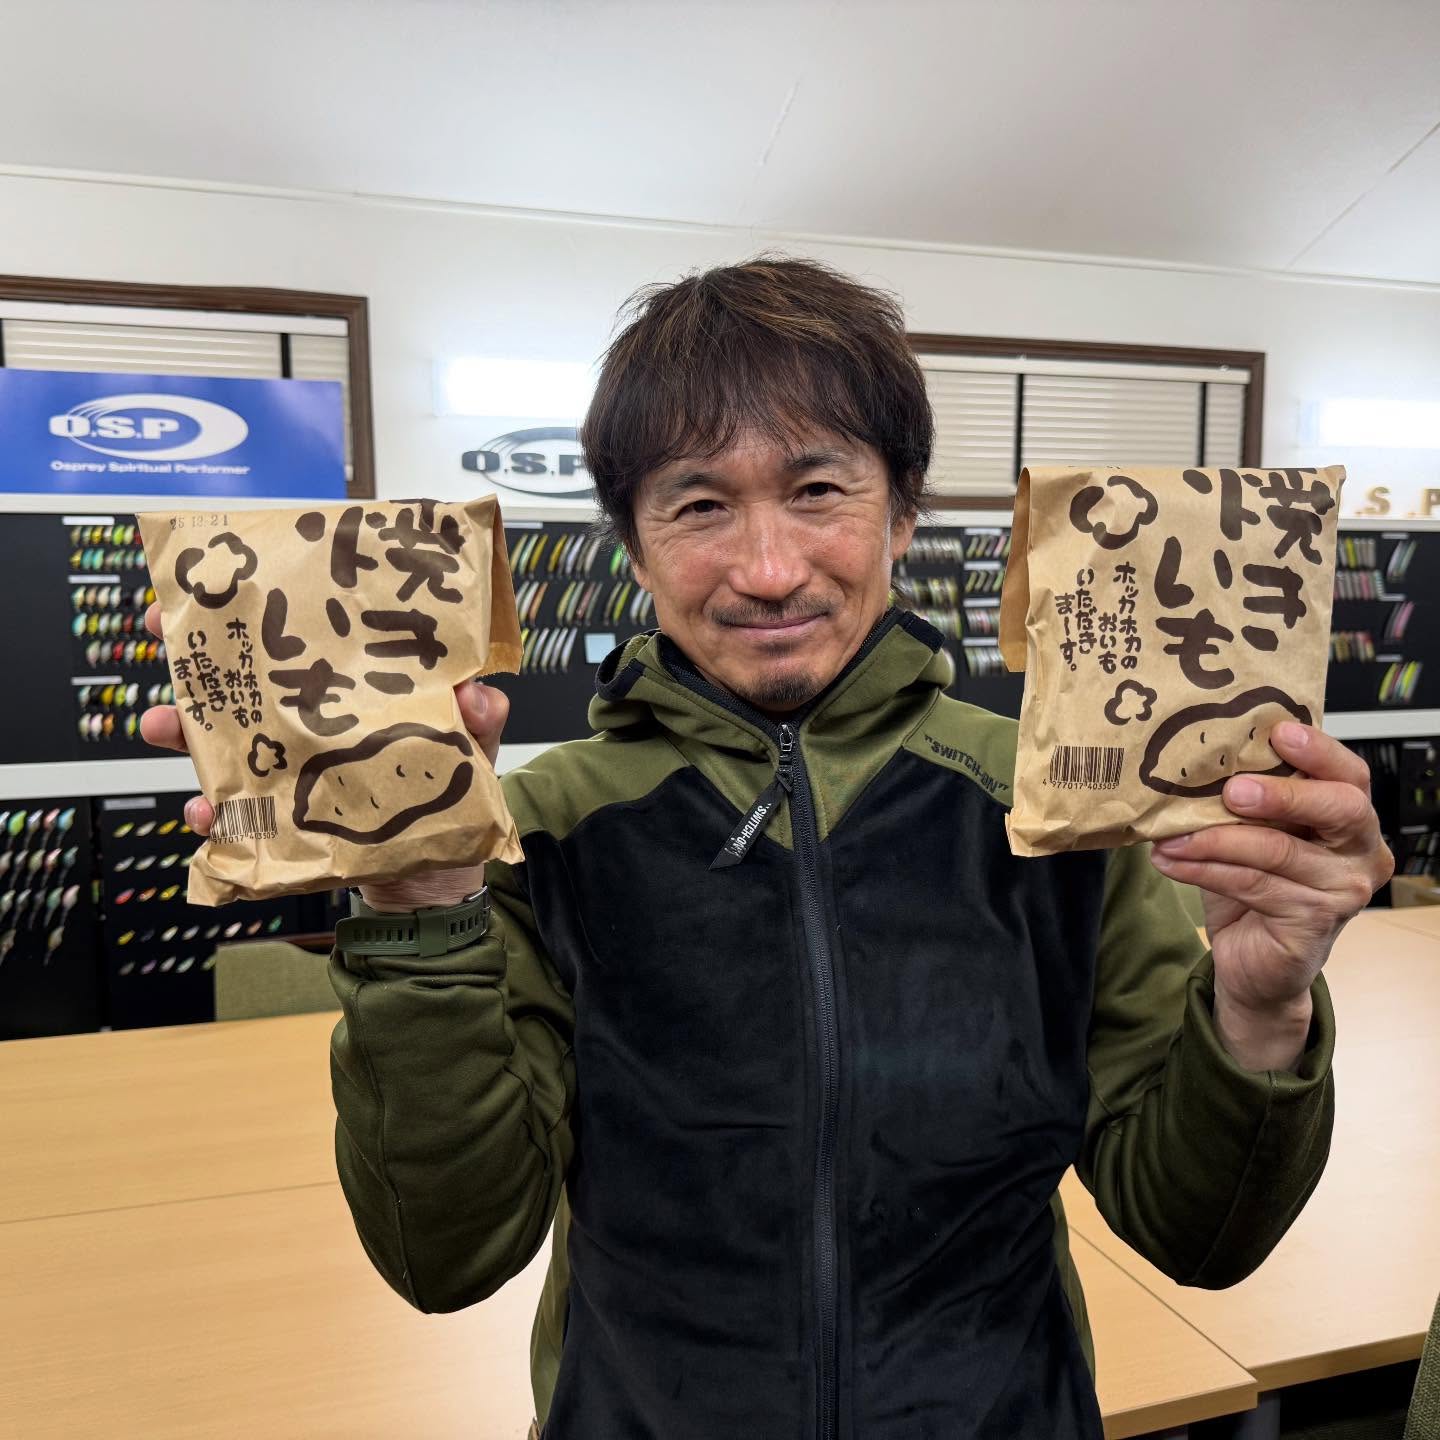 O.S.P
Osprey Spiritual Performer
O.S.P
.S.P
25 12.21
焼き
いも
ホッカホカの
おいも
いただき
まーす。
977017 403505
焼き
いも
ホッカホカの
おいも
いただき
まーす。
4 977017 403505
"SWITCH-ON"
"SWITCH-ON"